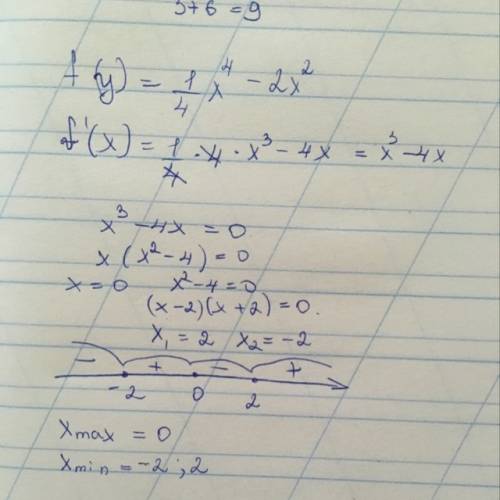 3+6 = 9
f(y) = 1/4 x⁴ - 2x²
f'(x) = 1/4 · 4 · x³ - 4x = x³ - 4x
x³ - 4x = 0
x (x² - 4) = 0
x = 0 x² - 4 = 0
(x - 2)(x + 2) = 0.
x₁ = 2 x₂ = -2
- + - +
-2 0 2
xmax = 0
xmin = -2 ; 2